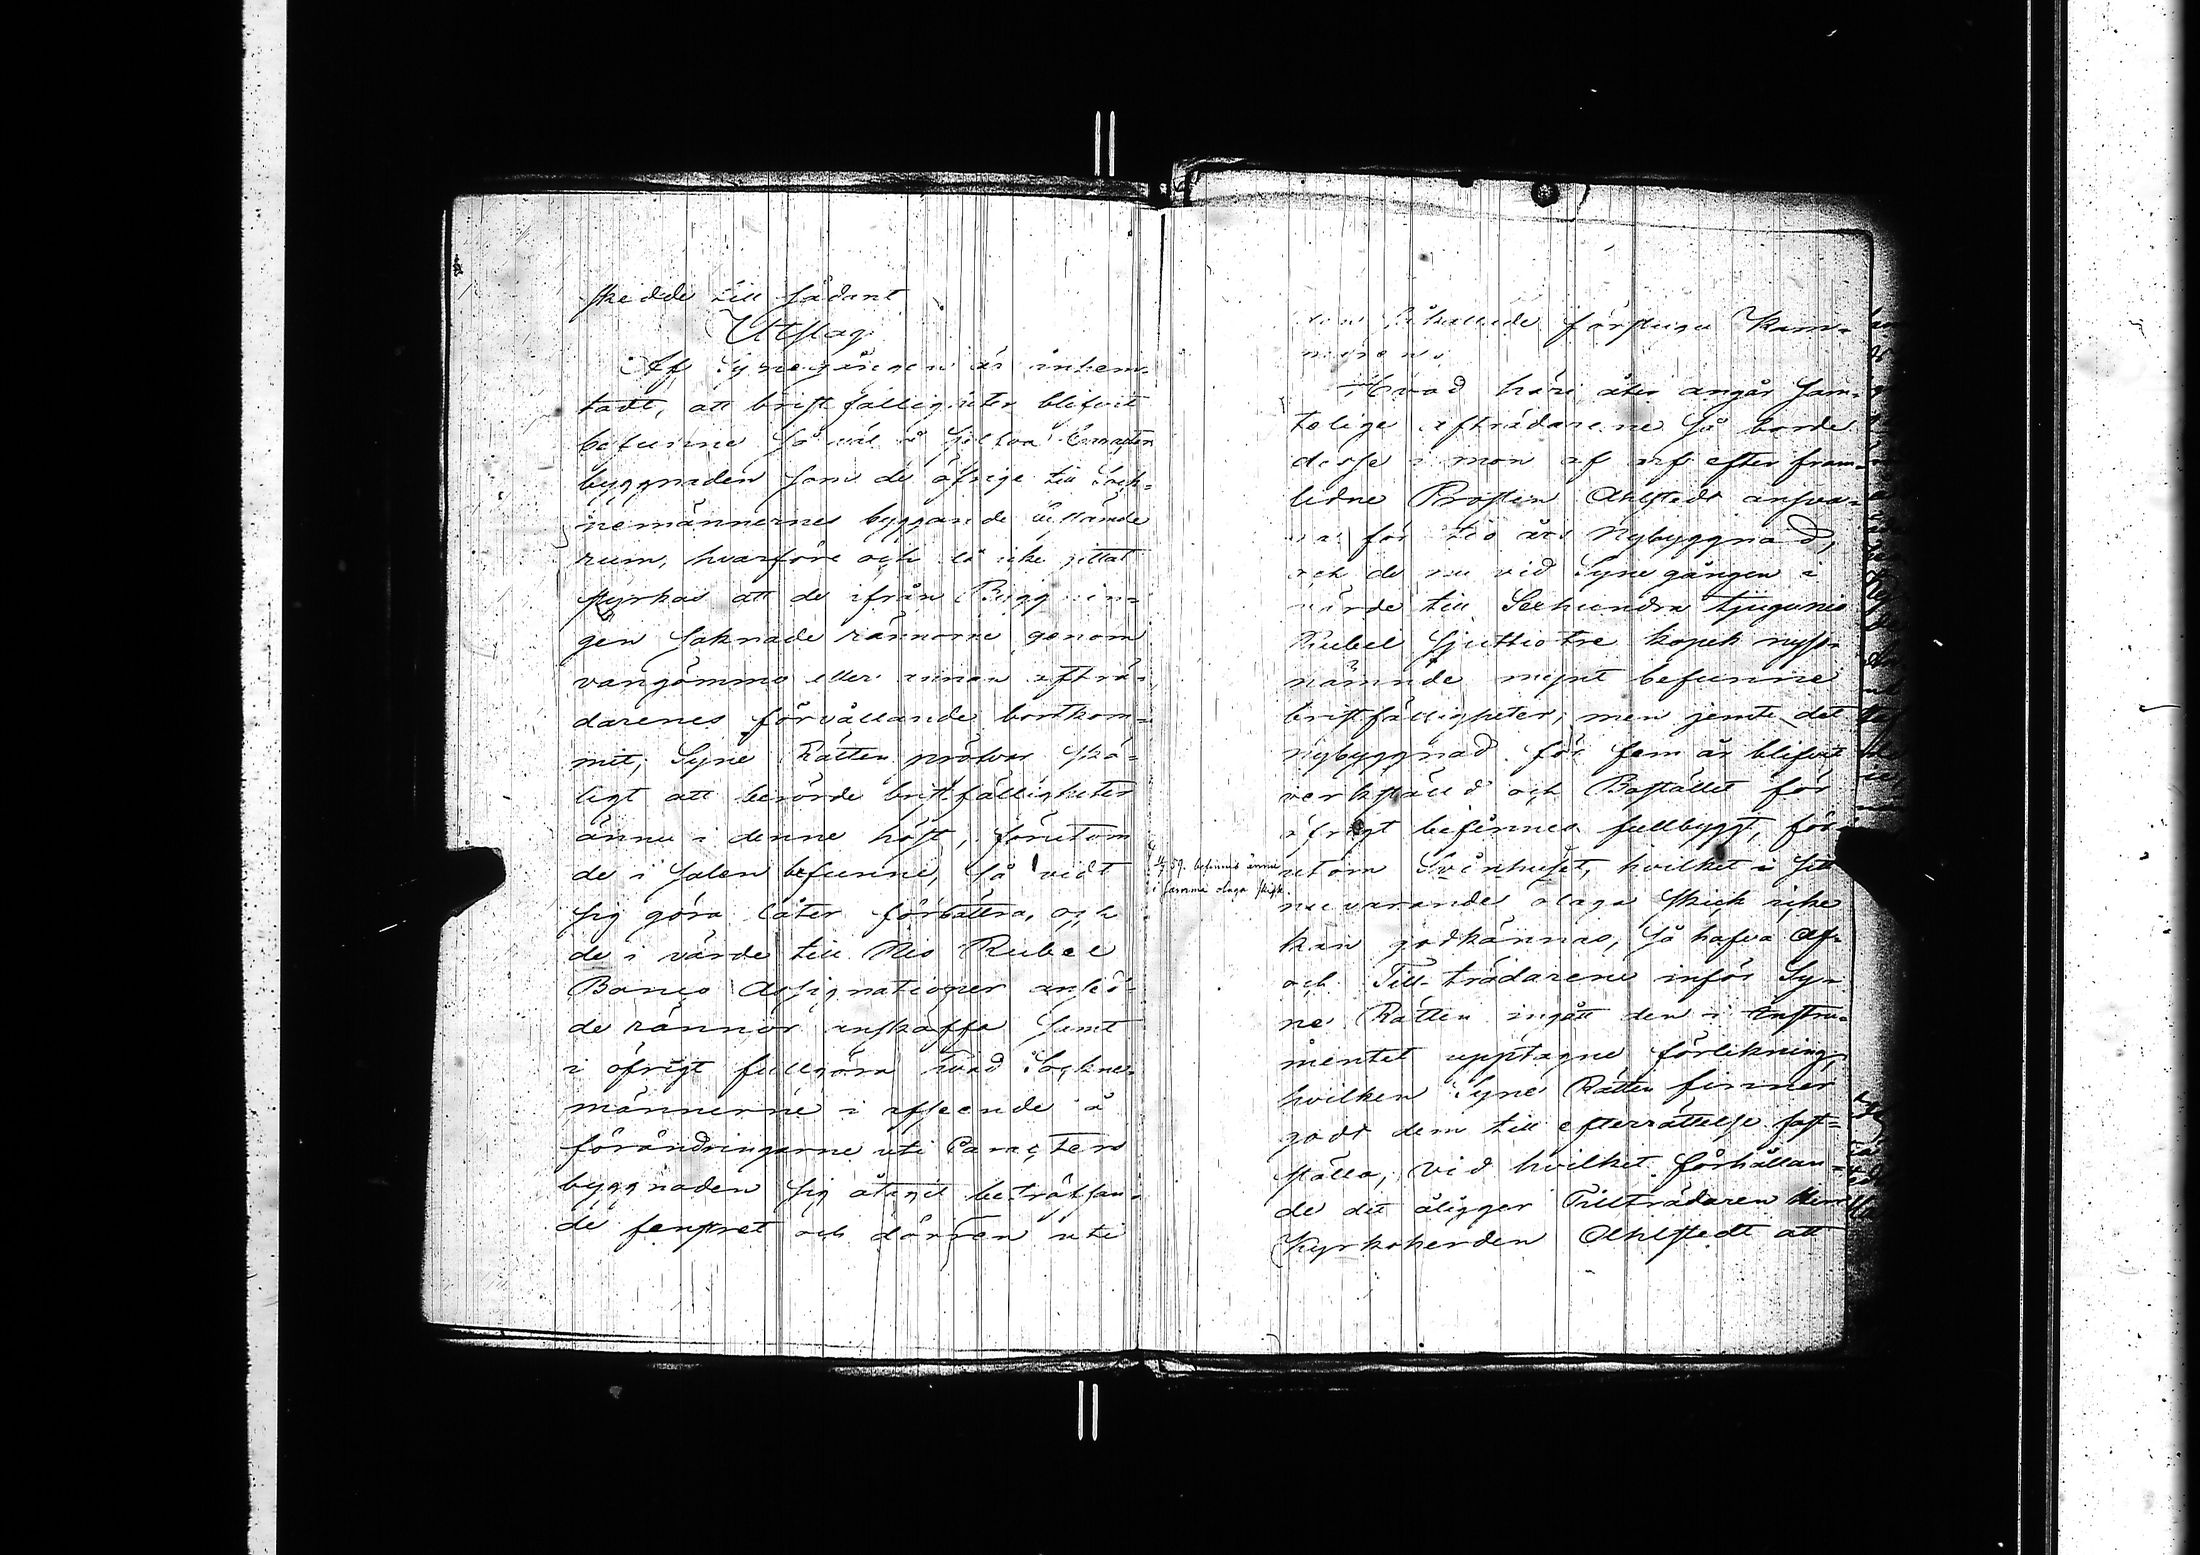 skedde till sådant
Utslag
Af Synegången är inhem-
tadt, att bristfälligheter blifvit
befunne så väl å sjelfva Caracters
byggnaden som de öfrige till Sock-
nemännernes byggande
rum, hvarföre och då icke
styrkas att de ifrån Byggnin-
gen saknade rännorne genom
vangömmo eller annan afträ-
darenes förvållande bortkom-
mit, Syne Rätten pröfvar skä-
ligt att berörde bristfälligheter
ännu i denne höst, förutom
de i salen befunne, så vidt
sig göra låter förbättra, och
de i värde till Nio Rubel
Banco Assignationer
de rännor anskaffa samt
i öfrigt fullgöra hvad Sockne-
männerne i afseende å
förändringarne uti Caracters
byggnaden sig åtagit beträffan-
de fenstret och dörren uti
förstugu Kam-
Hvad häri åter angår sam-
telige afträdarene så borde
desse i mon af arf efter fram-
ledne Prosten Ahlstedt ansva-
ra för tio års Nybyggnad,
och de nu vid Synegången i
värde till Sexhundra tjugunio
Rubel sjuttiotre kopek nyss-
nämnde mynt befunne
bristfälligheter; men jemte det
Nybyggnad för fem år blifvit
verkställd och Bostället för
öfrigt befinnes fullbyggt, för-
59. befinnes ännu
i samma olaga skick.
utom Svinhuset, hvilket i sitt
nuvarande olaga skick icke
kan godkännas, så hafva Af-
och Till-trädarene inför Sy-
ne Rätten ingått den i Instru-
mentet upptagne förlikning,
hvilken Syne Rätten finner
godt dem till efterrättelse fast-
ställa, vid hvilket förhållan-
de det åligger Tillträdaren Herr
Kyrkoherden Ahlstedt att